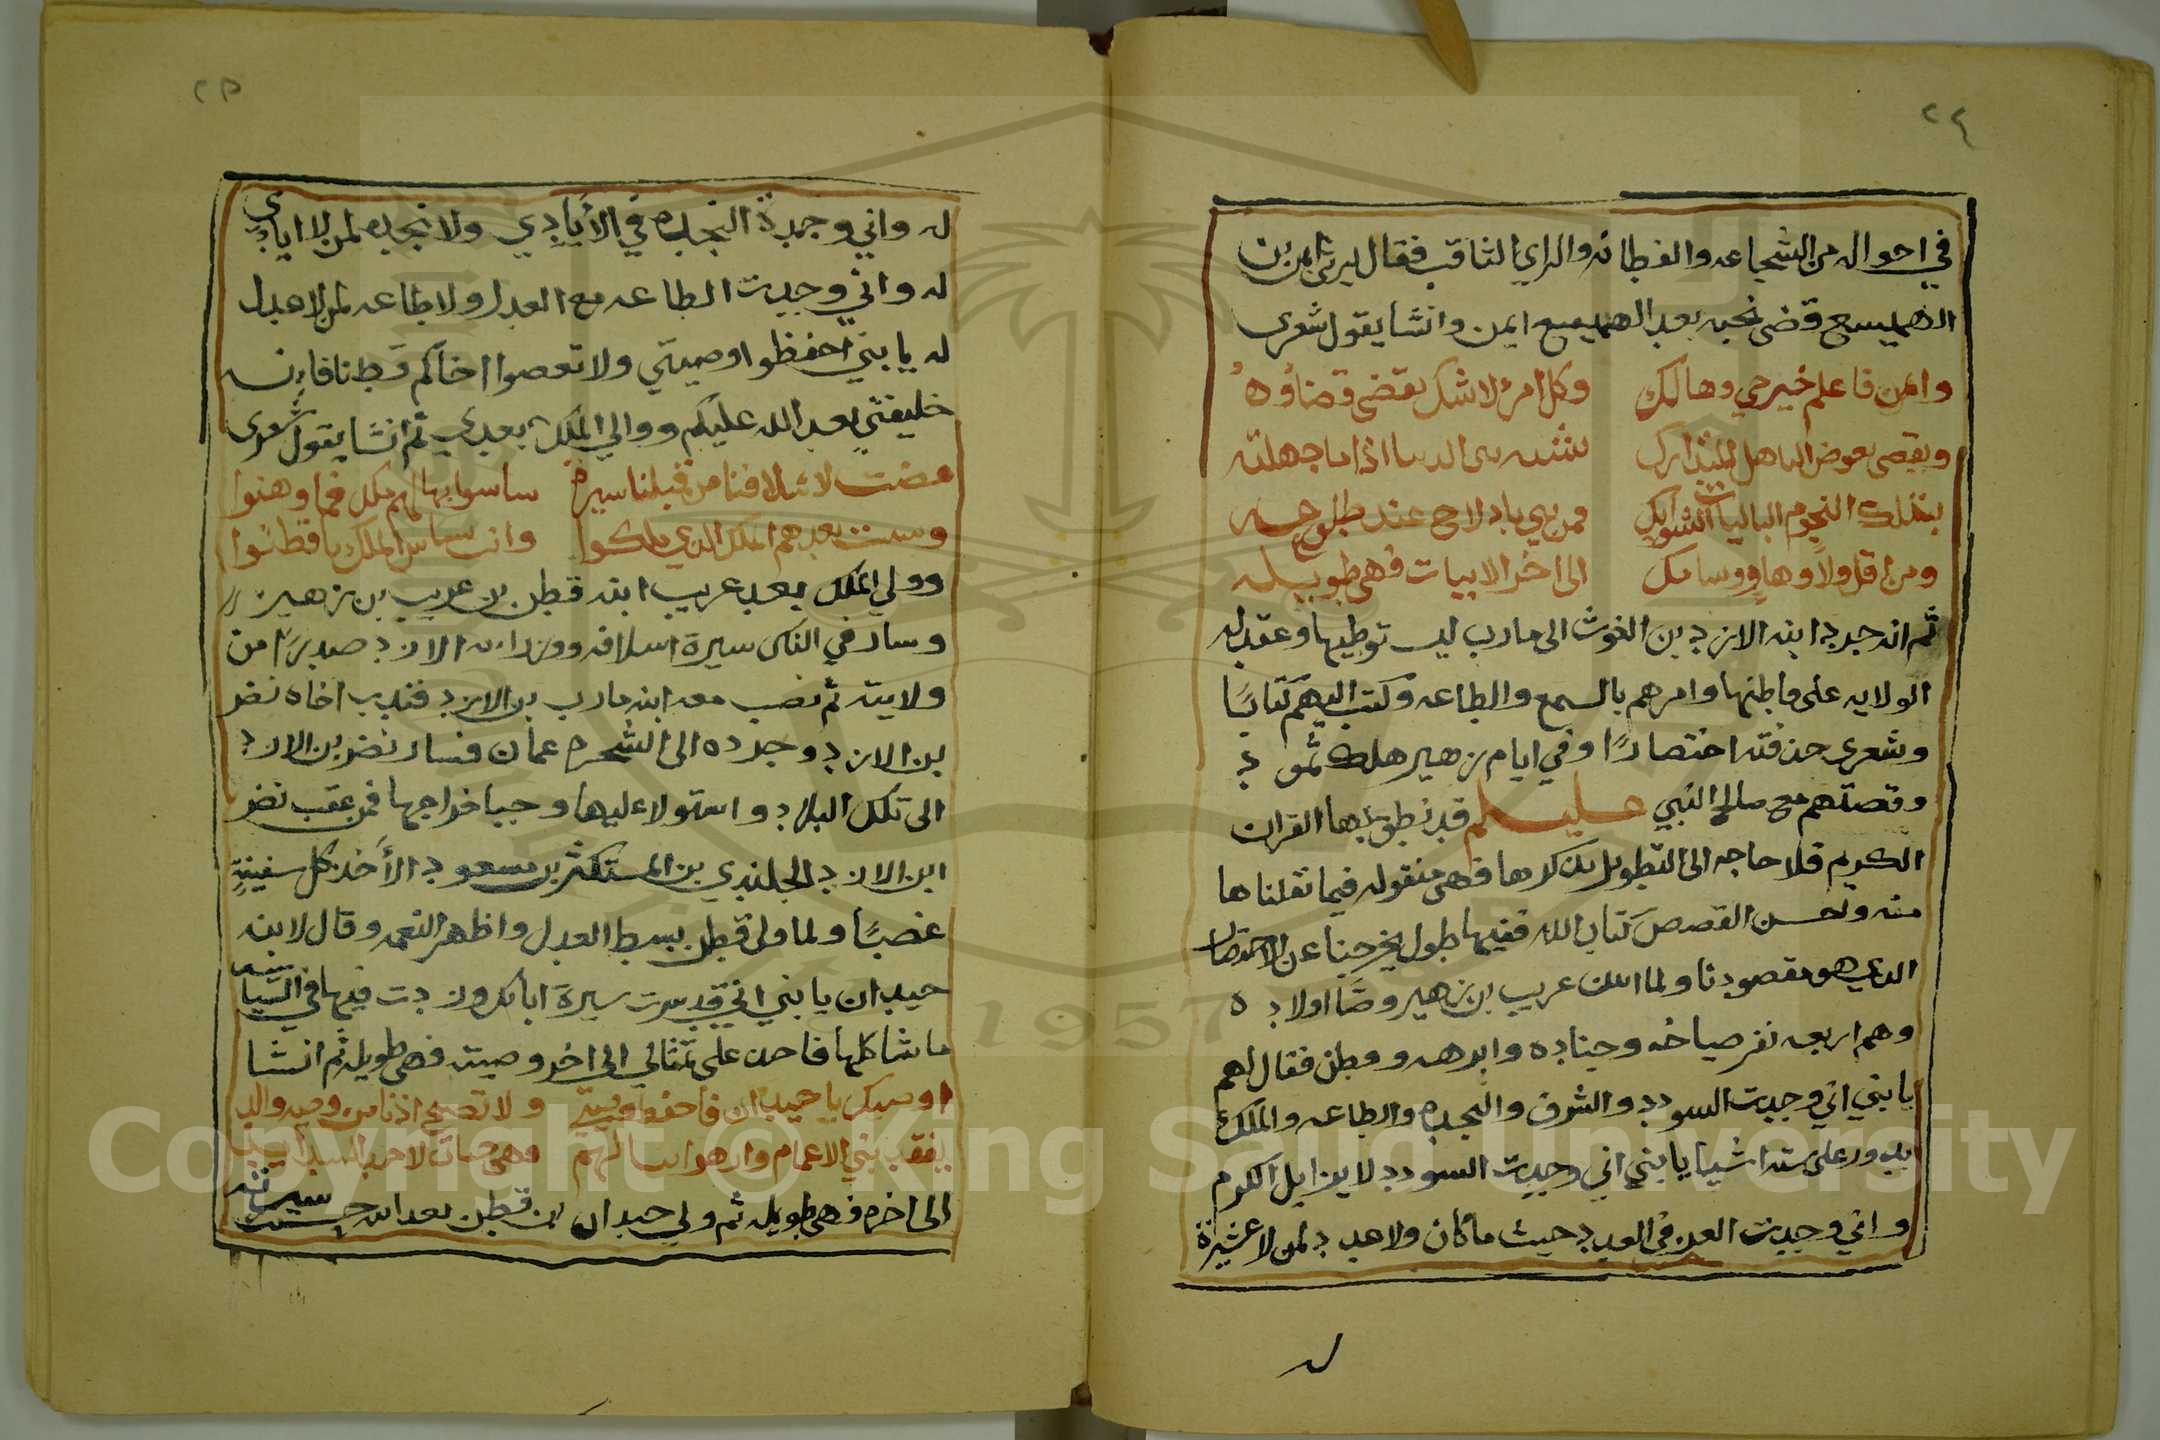 ٢٤
في احواله من الشجاعه والفطانه والراي الثاقب فقال يرثي ايمن بن
الهميسع قضى نحبه بعد الهميسع ايمن وانشا يقول شعرى
وايمن فاعلم خير حي وهالك وكل امرئ لاشك يقضى قضاؤه
ويقضى يعوض اذا ما جهلته
النجوم الباليات الشوابك فمن يي باد لاح عند طلوعه
ومن اقل ولا وهاو وسامك الى اخر الابيات فهي طويله
ثم انه جرد ابنه الازد بن الغوث الى مارب ليتوطيها وعقد له
الولايه على قاطنها وامرهم بالسمع والطاعه وكتب اليهم كتابًا
وشعرى حذفته اختصارًا وفي ايام زهير هلك ثمود
وقصتهم مع صالح النبي عليسلم قد نطق بها القران
الكريم فلا حاجه الى التطويل بذكرها فهي منقوله فيما نقلناها
منه ولحسن القصص كتاب الله ففيها طول يخرجنا عن الاختصار
الذي هو مقصودنا ولما اسن عريب بن زهير وصَّا اولاده
وهم اربعه نفر صياخه وجناده وابرهه وقطن فقال لهم
يا بني اني وجدت السودد والشرف والنجده والطاعه والملك
يدور على سته اشيا يا بني اني وجدت السودد لا يزايل الكرم
واني وجدت العز في العدد حيث ما كان ولا عدد لمن لا عشيرة
له
٢٥
له واني وجدة النجده في الأيادي ولا نجده لمن لا ايادي
له واني وجدت الطاعه مع العدل ولا طاعه لمن لا عدل
له يا بني احفظوا وصيتي ولا تعصوا اخاكم قطنا فانه
خليفتي بعد الله عليكم ووالي الملك بعدي ثم انشا يقول شعرى
مضت لاسلافنا من قبلنا سيرة ساسوا بها لهم ملك فما وهنوا
وسست بعدهم الملك الذي ملكوا وانت ساس الملك يا قطنُوا
وولي الملك بعد عريب ابنه قطن بن عريب بن زهير
وسار في الناس سيرة اسلافه ووزراءه الازد صدرًا من
ولايته ثم نصب معه ابنه مارب بن الازد فندب اخاه نضر
بن الازد وجرده الى الشحر عمان فسار نضر بن الازد
الى تلك البلاد واستولا عليها وجبا خراجها فمن عقب نضر
ابن الازد الجلندي بن المستكثر بن مسعود الأخذ كل سفينةٍ
غصبًا ولما ولى قطن بسط العدل واظهر النعمه وقال لابنه
حيدان يا بني اني قد سرت سيرة اباك وزدت فيها في السياسه
ما شاكلها فاحذ على مثالي الى اخر وصيته فهي طويله ثم انشا
اوصيك يا حيدان فاحفظ وصيتي ولا تصغي اذنا من وصيه والد
بفقد بني الاعمام
الى اخره فهي طويله ثم ولي حيدان بن قطن بعد ابيه حسنت سيرته